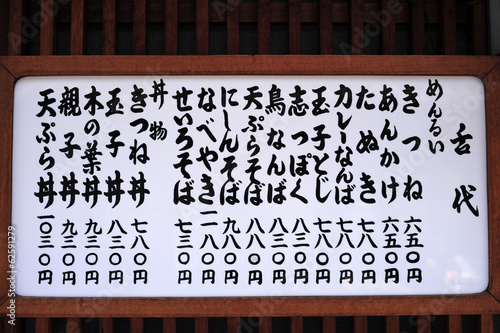 舌代
めんるい
きつね 六五〇円
あんかけ 六五〇円
たぬき 七八〇円
カレーなんば 七八〇円
玉子とじ 七八〇円
志っぽく 八三〇円
鳥なんば 八三〇円
天ぷらそば 八八〇円
にしんそば 九八〇円
なべやき 一一八〇円
せいろそば 七三〇円
丼物
きつね丼 七八〇円
玉子丼 八三〇円
木の葉丼 九三〇円
親子丼 九三〇円
天ぷら丼 一〇三〇円